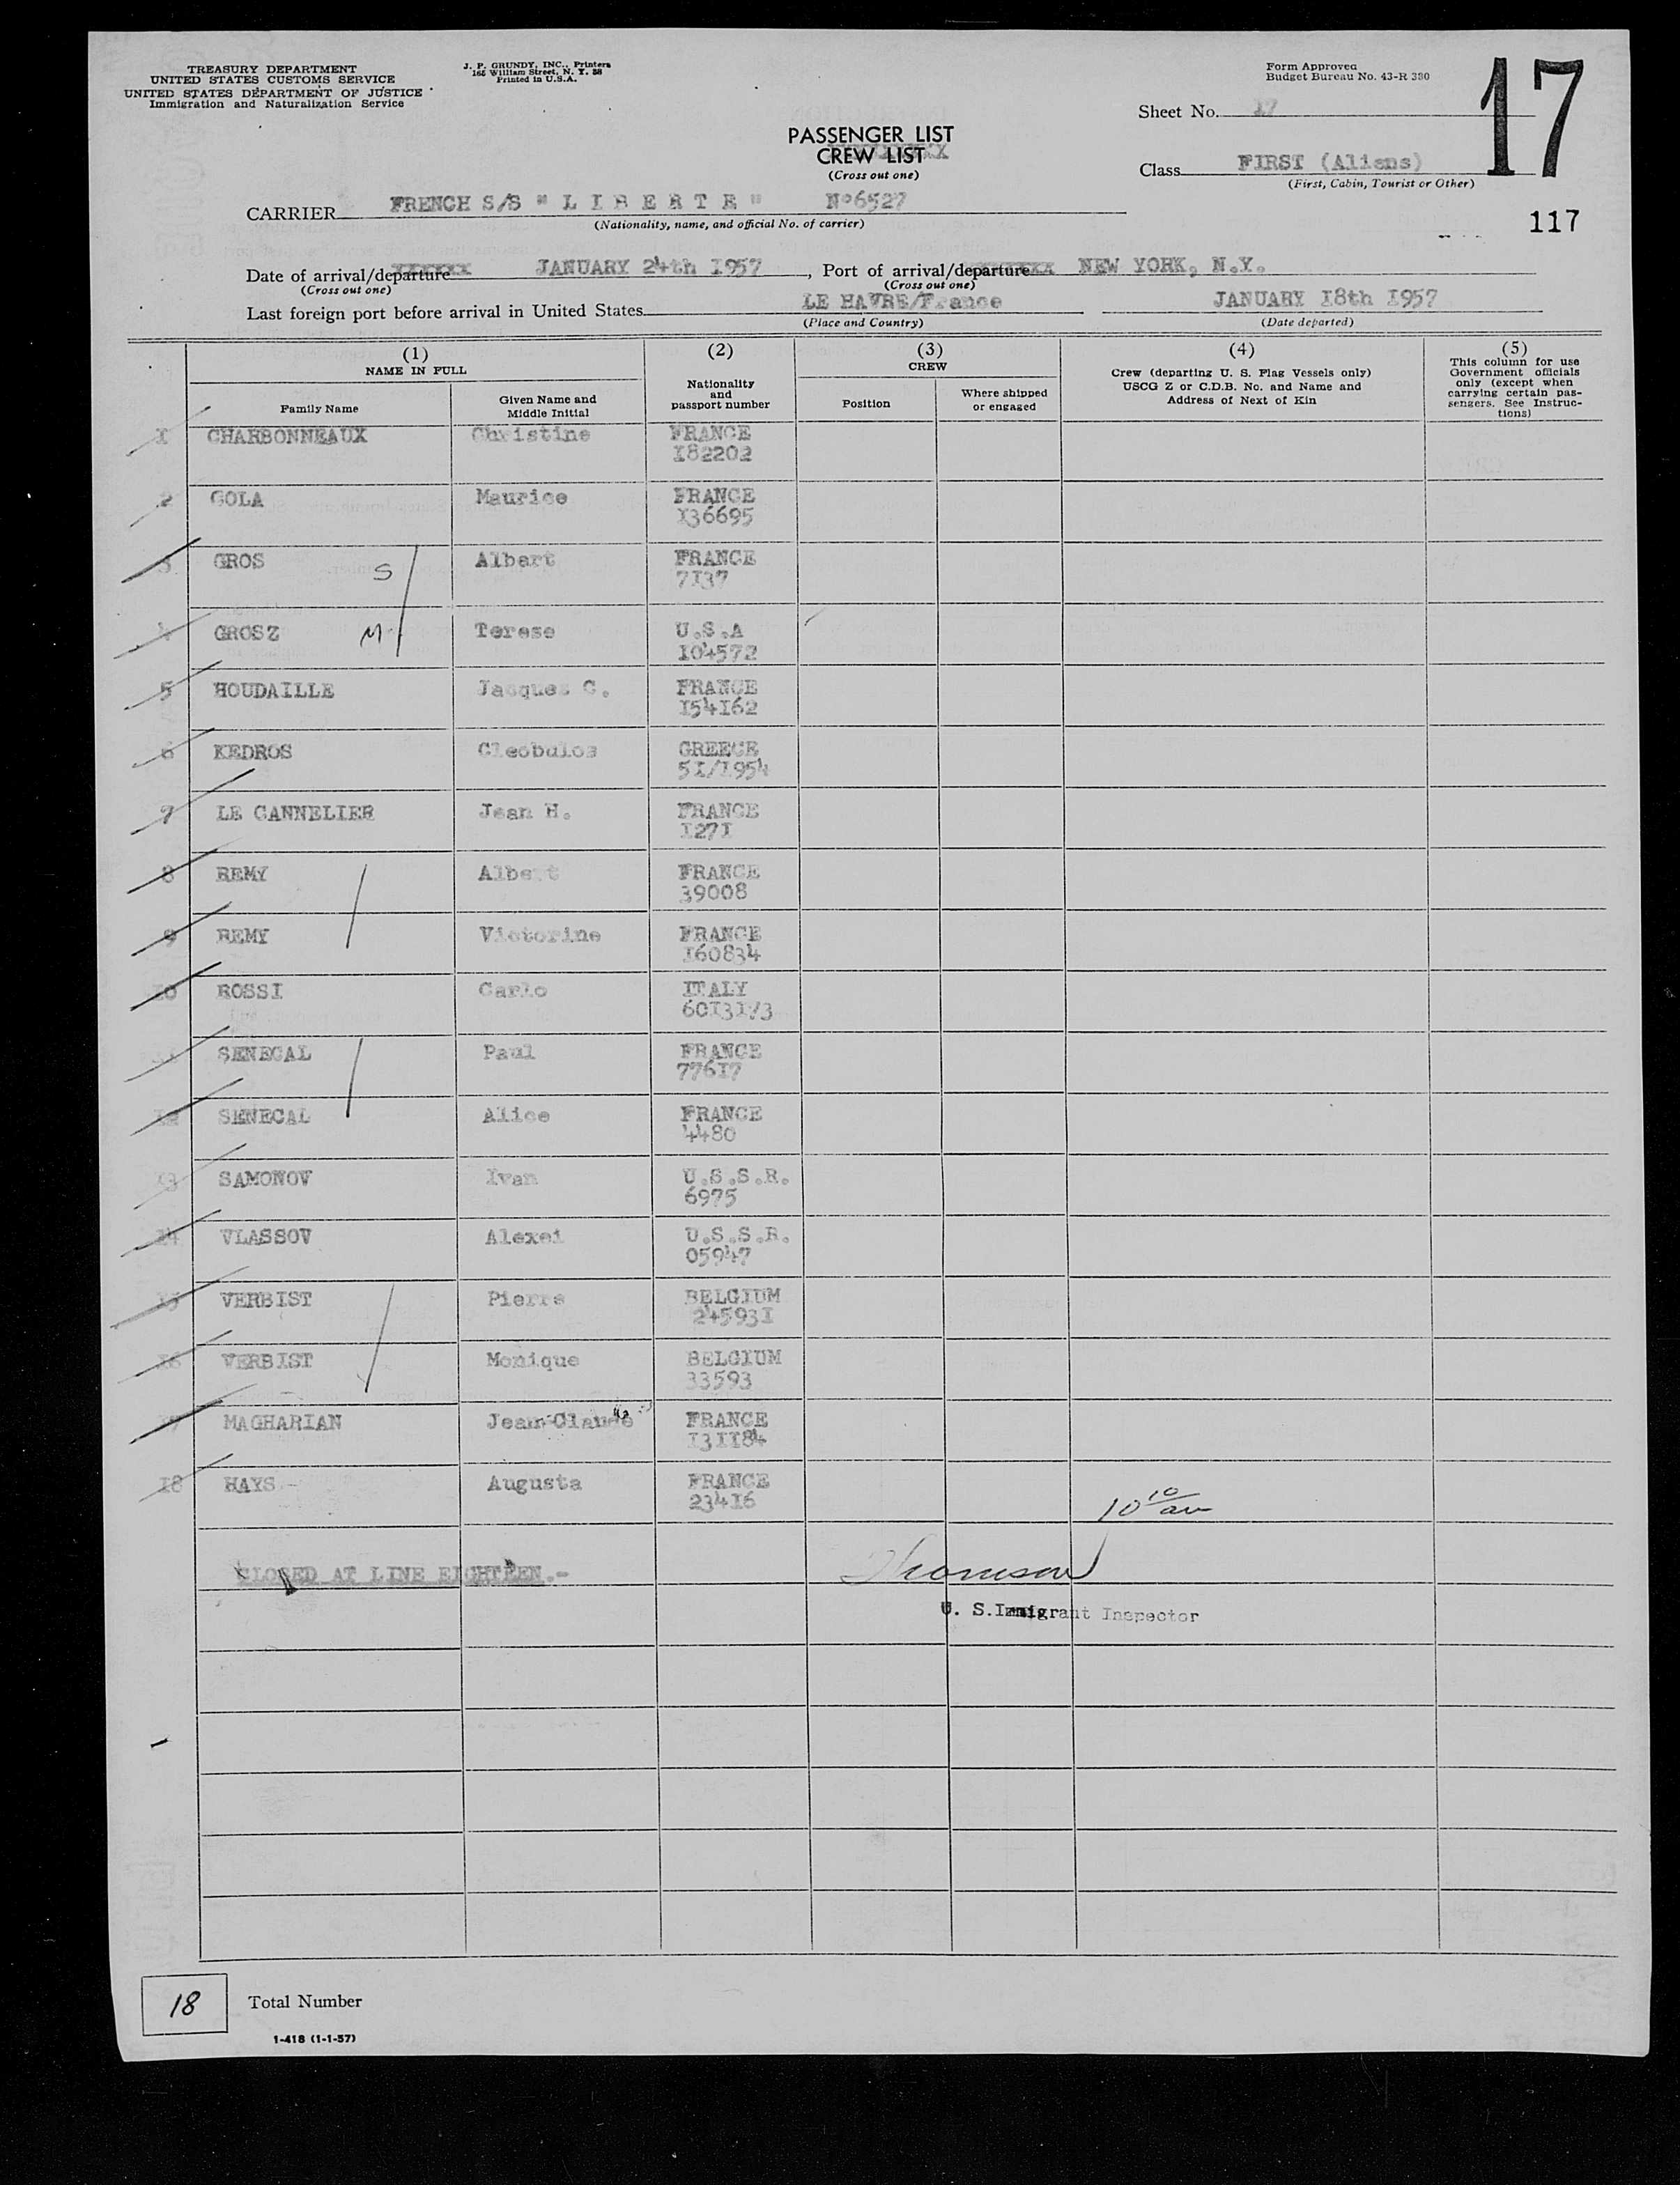 TREASURY DEPARTMENT
UNITED STATES CUSTOMS SERVICE
UNITED STATES DEPARTMENT OF JUSTICE
Immigration and Naturalization Service
J. P. GRUNDY, INC., Printers
166 William Street, N. Y. 38
Printed in U.S.A.
Form Approved
Budget Bureau No. 43-R 390
17
Sheet No. 17
PASSENGER LIST
CREW LIST
(Cross out one)
Class FIRST (Aliens)
(First, Cabin, Tourist or Other)
CARRIER FRENCH S/S " L I B E R T E " N°6527
(Nationality, name, and official No. of carrier)
117
Date of arrival/departure JANUARY 24th 1957, Port of arrival/departure NEW YORK, N.Y.
(Cross out one) (Cross out one)
Last foreign port before arrival in United States LE HAVRE/France JANUARY 18th 1957
(Place and Country) (Date departed)
(1) (2) (3) (4) (5)
NAME IN FULL
Family Name
Given Name and
Middle Initial
Nationality
and
passport number
CREW
Position
Where shipped
or engaged
Crew (departing U. S. Flag Vessels only)
USCG Z or C.D.B. No. and Name and
Address of Next of Kin
This column for use
Government officials
only (except when
carrying certain pas-
sengers. See Instruc-
tions)
1 CHARBONNEAUX Christine FRANCE
182202
2 GOLA Maurice FRANCE
136695
3 GROS S Albert FRANCE
7137
4 GROSZ M Terese U.S.A
104572
5 HOUDAILLE Jacques C. FRANCE
154162
6 KEDROS Cleobulos GREECE
51/1954
7 LE CANNELIER Jean H. FRANCE
1271
8 REMY Albert FRANCE
39008
9 REMY Victorine FRANCE
160834
10 ROSSI Carlo ITALY
6013173
11 SENECAL Paul FRANCE
77617
12 SENECAL Alice FRANCE
4480
13 SAMONOV Ivan U.S.S.R.
6975
14 VLASSOV Alexei U.S.S.R.
05947
15 VERBIST Pierre BELGIUM
245931
16 VERBIST Monique BELGIUM
33593
17 MAGHARIAN Jean-Claude FRANCE
131184
18 HAYS.- Augusta FRANCE
23416
10 10 am
CLOSED AT LINE EIGHTEEN.-
Thomson
U. S. Immigrant Inspector
18 Total Number
1-418 (1-1-57)